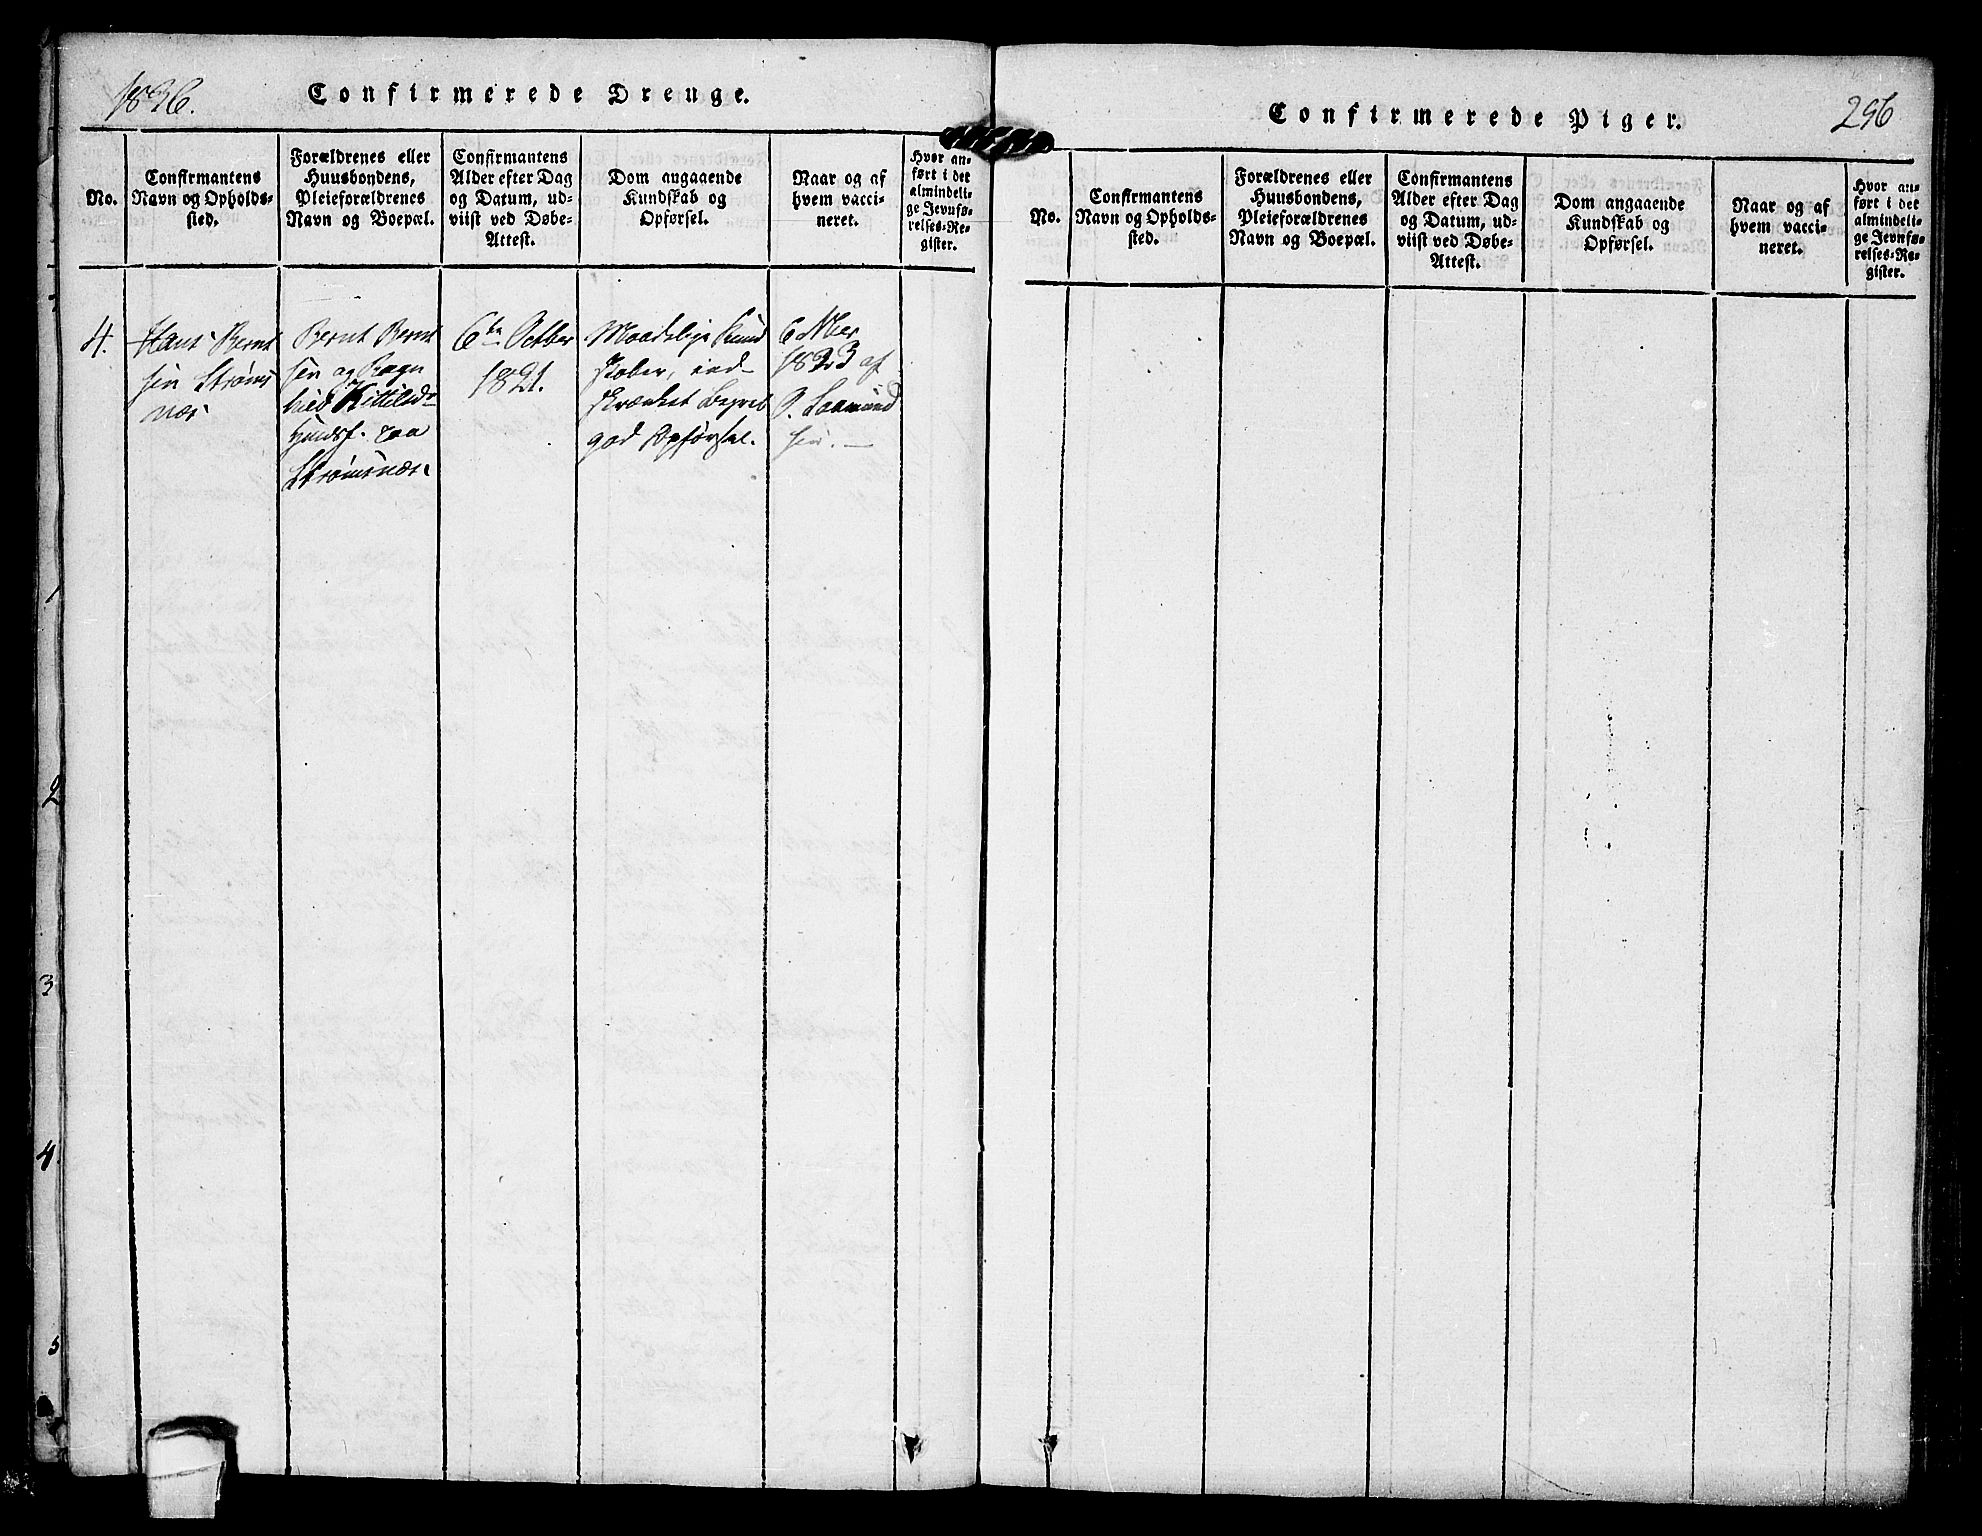 1836.
Confirmerede Drenge.
No.
Confirmantens
Navn og Opholds-
sted.
Forældrenes eller
Huusbondens,
Pleieforældrenes
Navn og Boepæl.
Confirmantens
Alder efter Dag
og Datum, ud-
viist ved Døbe-
Attest.
Dom angaaende
Kundskab og
Opførsel.
Naar og af
hvem vacci-
neret.
Hvor an-
ført i det
almindeli-
ge Jevnfø-
relses-Re-
gister.
4.
Hans Bernt
sen Strøms
næs
Bernt Bernt
sen og Ragn
hild Kittilsd.
Huusf. paa
Strømsnæs.
6te October
1821.
Maadelige Kund
skaber, ind-
skrænket Begreb
god Opførsel.
1823 af
sen. —
Confirmerede Piger.
296
No.
Confirmantens
Navn og Opholds-
sted.
Forældrenes eller
Huusbondens,
Pleieforældrenes
Navn og Boepæl.
Confirmantens
Alder efter Dag
og Datum, ud-
viist ved Døbe-
Attest.
Dom angaaende
Kundskab og
Opførsel.
Naar og af
hvem vacci-
neret.
Hvor an-
ført i det
almindeli-
ge Jevnfø-
relses-Re-
gister.
1
2
3
4.
5